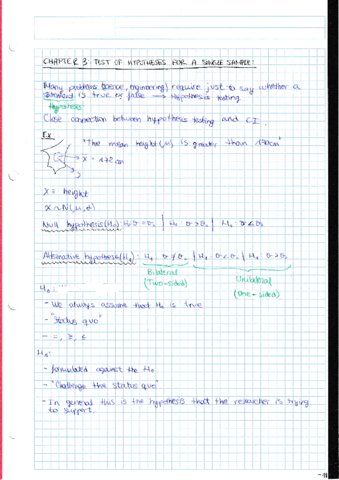 CHAPTER 3: TEST OF HYPOTHESES FOR A SINGLE SAMPLE!
Many problems (science, engineering) require just to say whether a
statement is true or false → Hypothesis testing.
Hypothesis
Close connection between hypothesis testing and C.I.
Ex
"The mean height (μ) is greater than
x̄ = 172 cm
X = height
X ~ N(μ, σ)
Null hypothesis (H₀): H₀ θ = θ₀ | H₀ θ ≥ θ₀ | H₀ θ ≤ θ₀
Alternative hypothesis (H₁): H₁ θ ≠ θ₀ | H₁ θ < θ₀ | H₁ θ > θ₀
Bilateral
(Two-sided)
Unilateral
(One-sided)
H₀:
- We always assume that H₀ is true
- "Status quo"
- =, ≥, ≤
H₁:
- formulated against the H₀
- "Challenge the status quo"
- In general this is the hypothesis that the researcher is trying
to support.